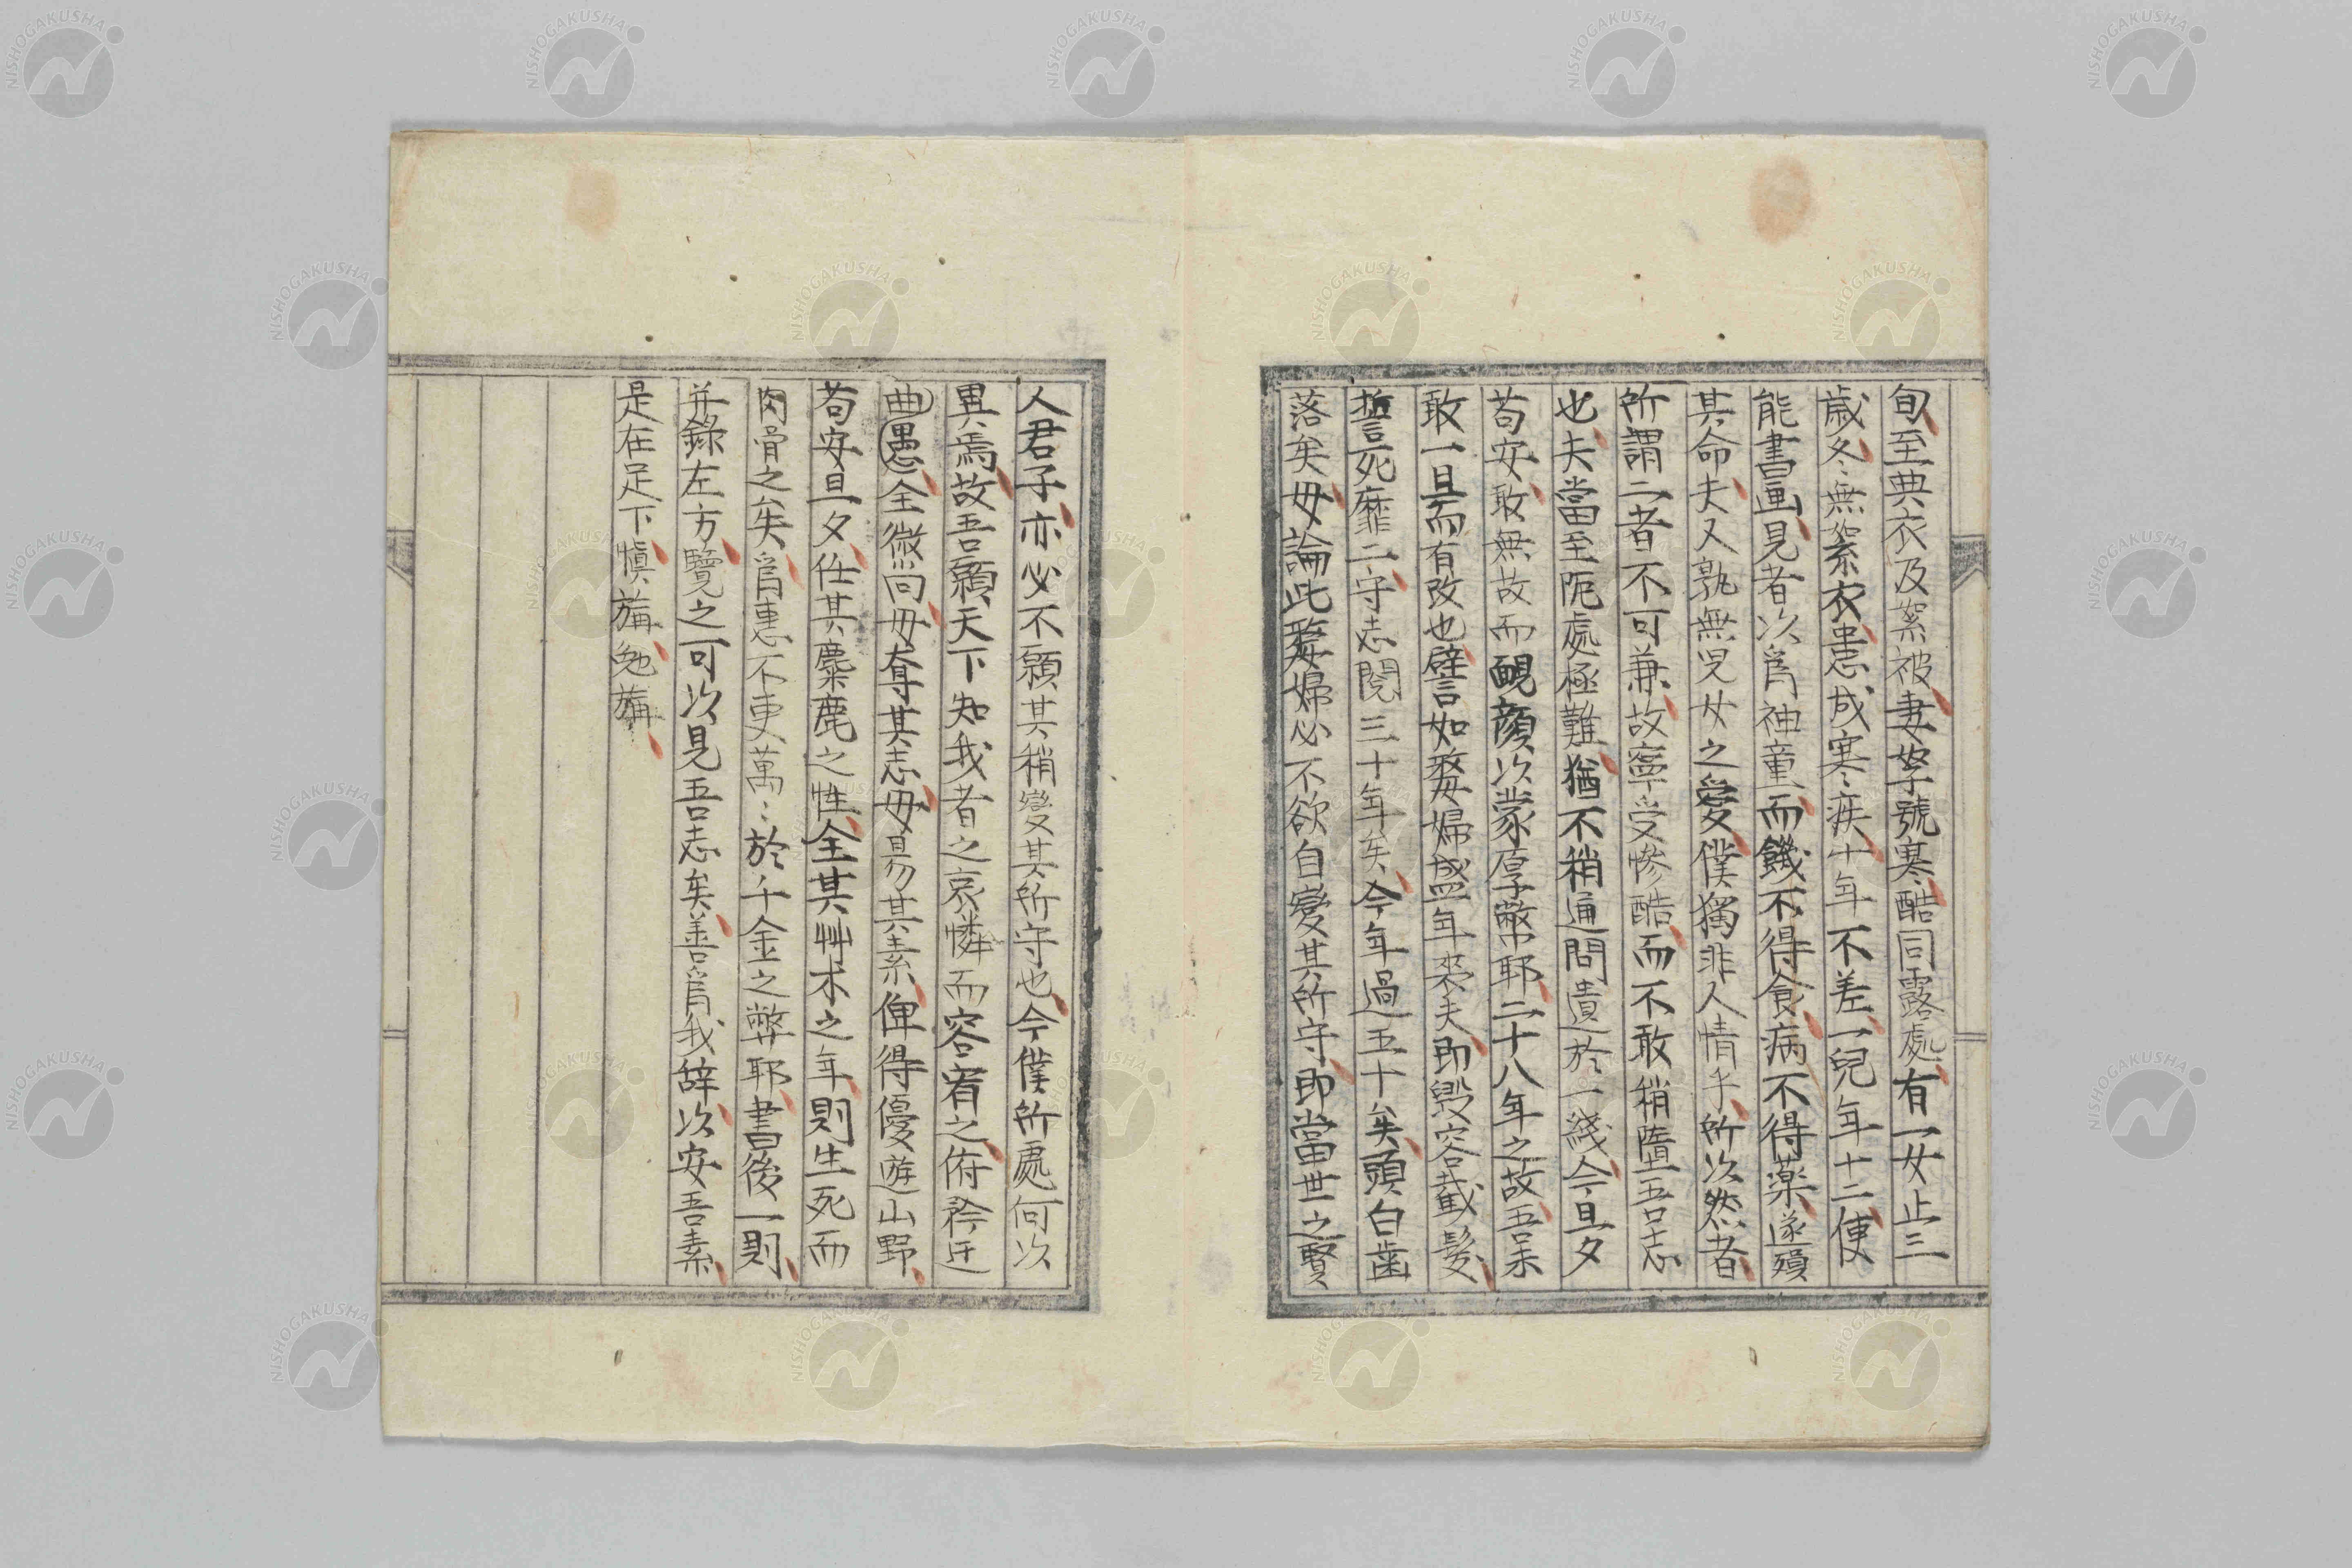 旬至典衣及絮被妻孥號寒酷同露處有一女止三
歲冬無絮衣患成寒疾十年不差一兒年十二便
能書画見者以為神童而饑不得食病不得藥遂殞
其命夫人孰無兒女之愛僕獨非人情乎所以然者
所謂二者不可兼故寧受慘酷而不敢稍隳吾志
也夫當至阨處極難猶不稍通問遺於一綫今旦夕
苟安敢無故而靦顏以蒙厚幣耶二十八年之故吾未
敢一旦而有改也譬如嫠婦盛年喪夫即毀容截髮
誓死靡二守志閱三十年矣今年過五十矣頭白齒
落矣毋論此嫠婦必不欲自變其所守即當世之賢
人君子亦必不願其稍變其所守也今僕所處何以
異焉故吾願天下知我者之哀憐而容宥之俯矜迂
曲愚全微尚毋奪其志毋易其素俾得優遊山野
苟安旦夕任其麋鹿之性全其艸木之年則生死而
肉骨之矣為惠不更萬〻於千金之幣耶書後一則
并錄左方覽之可以見吾志矣善為我辞以安吾素
是在足下慎旃勉旃
NISHOGAKUSHA